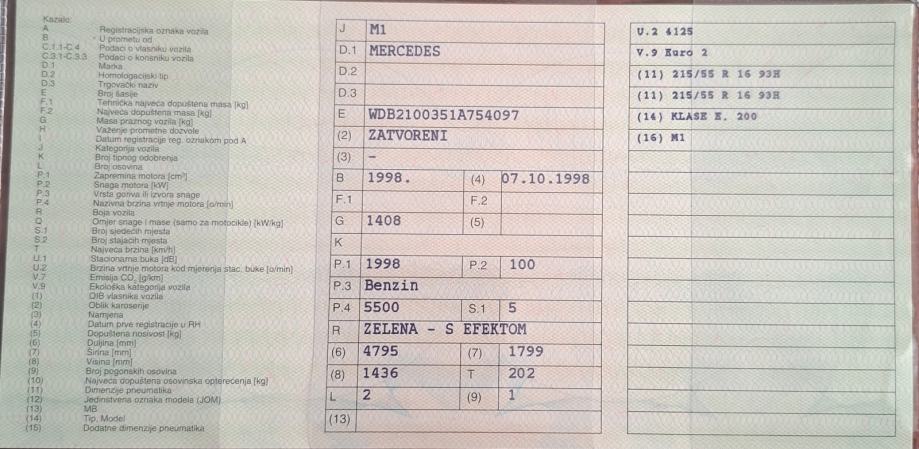 Kazalo:
A Registracijska oznaka vozila
B U prometu od
C.1.1-C.4 Podaci o vlasniku vozila
C.3.1-C.3.3 Podaci o korisniku vozila
D.1 Marka
D.2 Homologacijski tip
D.3 Trgovački naziv
E Broj šasije
F.1 Tehnička najveća dopuštena masa [kg]
F.2 Najveća dopuštena masa [kg]
G Masa praznog vozila [kg]
H Važenje prometne dozvole
I Datum registracije reg. oznakom pod A
J Kategorija vozila
K Broj tipnog odobrenja
L Broj osovina
P.1 Zapremina motora [cm³]
P.2 Snaga motora [kW]
P.3 Vrsta goriva ili izvora snage
P.4 Nazivna brzina vrtnje motora [o/min]
R Boja vozila
Q Omjer snage i mase (samo za motocikle) [kW/kg]
S.1 Broj sjedećih mjesta
S.2 Broj stajaćih mjesta
T Najveća brzina [km/h]
U.1 Stacionarna buka [dB]
U.2 Brzina vrtnje motora kod mjerenja stac. buke [o/min]
V.7 Emisija CO₂ [g/km]
V.9 Ekološka kategorija vozila
(1) OIB vlasnika vozila
(2) Oblik karoserije
(3) Namjena
(4) Datum prve registracije u RH
(5) Dopuštena nosivost [kg]
(6) Duljina [mm]
(7) Širina [mm]
(8) Visina [mm]
(9) Broj pogonskih osovina
(10) Najveća dopuštena osovinska opterećenja [kg]
(11) Dimenzije pneumatika
(12) Jedinstvena oznaka modela (JOM)
(13) MB
(14) Tip, Model
(15) Dodatne dimenzije pneumatika
J M1
D.1 MERCEDES
D.2
D.3
E WDB2100351A754097
(2) ZATVORENI
(3) –
B 1998. (4) 07.10.1998
F.1 F.2
G 1408 (5)
K
P.1 1998 P.2 100
P.3 Benzin
P.4 5500 S.1 5
R ZELENA - S EFEKTOM
(6) 4795 (7) 1799
(8) 1436 T 202
L 2 (9) 1
(13)
U.2 4125
V.9 Euro 2
(11) 215/55 R 16 93H
(11) 215/55 R 16 93H
(14) KLASE E. 200
(16) M1